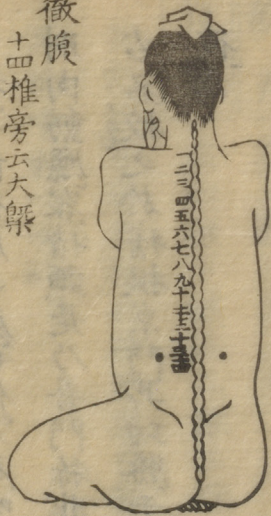 徹腹
十四椎旁云大槩
一二三四五六七八九十十一十二十三十四